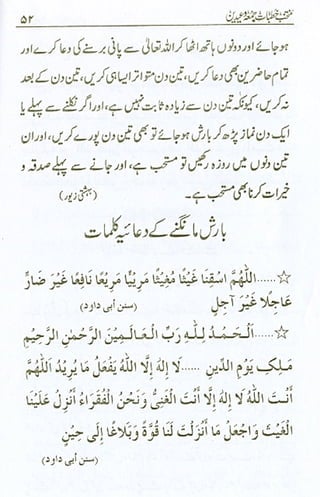 منتخب خطبات جمعہ و عیدین
۵۲
ہو جائے اور دونوں ہاتھ اٹھا کر اللہ تعالیٰ سے پانی برسنے کی دعا کرے اور
تمام حاضرین بھی دعا کریں، تین دن متواتر ایسا ہی کریں، تین دن کے بعد
نہ کریں، کیونکہ تین دن سے زیادہ ثابت نہیں ہے، اور اگر نکلنے سے پہلے یا
ایک دن نماز پڑھ کر بارش ہو جائے تو بھی تین دن پورے کریں، اور ان
تین دنوں میں روزہ رکھیں تو مستحب ہے، اور جانے سے پہلے صدقہ و
خیرات کرنا بھی مستحب ہے۔
(بہشتی زیور)
بارش مانگنے کے دعائیہ کلمات
☆......اَللّٰهُمَّ اسْقِنَا غَيْثًا مُغِيْثًا مَرِيْئًا مَرِيْعًا نَافِعًا غَيْرَ ضَارٍّ
عَاجِلًا غَيْرَ آجِلٍ
(سنن أبی داود)
☆......اَلْحَمْدُ لِلّٰهِ رَبِّ الْعَالَمِيْنَ الرَّحْمٰنِ الرَّحِيْمِ
مَلِكِ يَوْمِ الدِّيْنِ ...... لَا إِلٰهَ إِلَّا اللّٰهُ يَفْعَلُ مَا يُرِيْدُ اَللّٰهُمَّ
أَنْتَ اللّٰهُ لَا إِلٰهَ إِلَّا أَنْتَ الْغَنِيُّ وَنَحْنُ الْفُقَرَاءُ أَنْزِلْ عَلَيْنَا
الْغَيْثَ وَاجْعَلْ مَا أَنْزَلْتَ لَنَا قُوَّةً وَبَلَاغًا إِلَى حِيْنٍ
(سنن أبی داود)